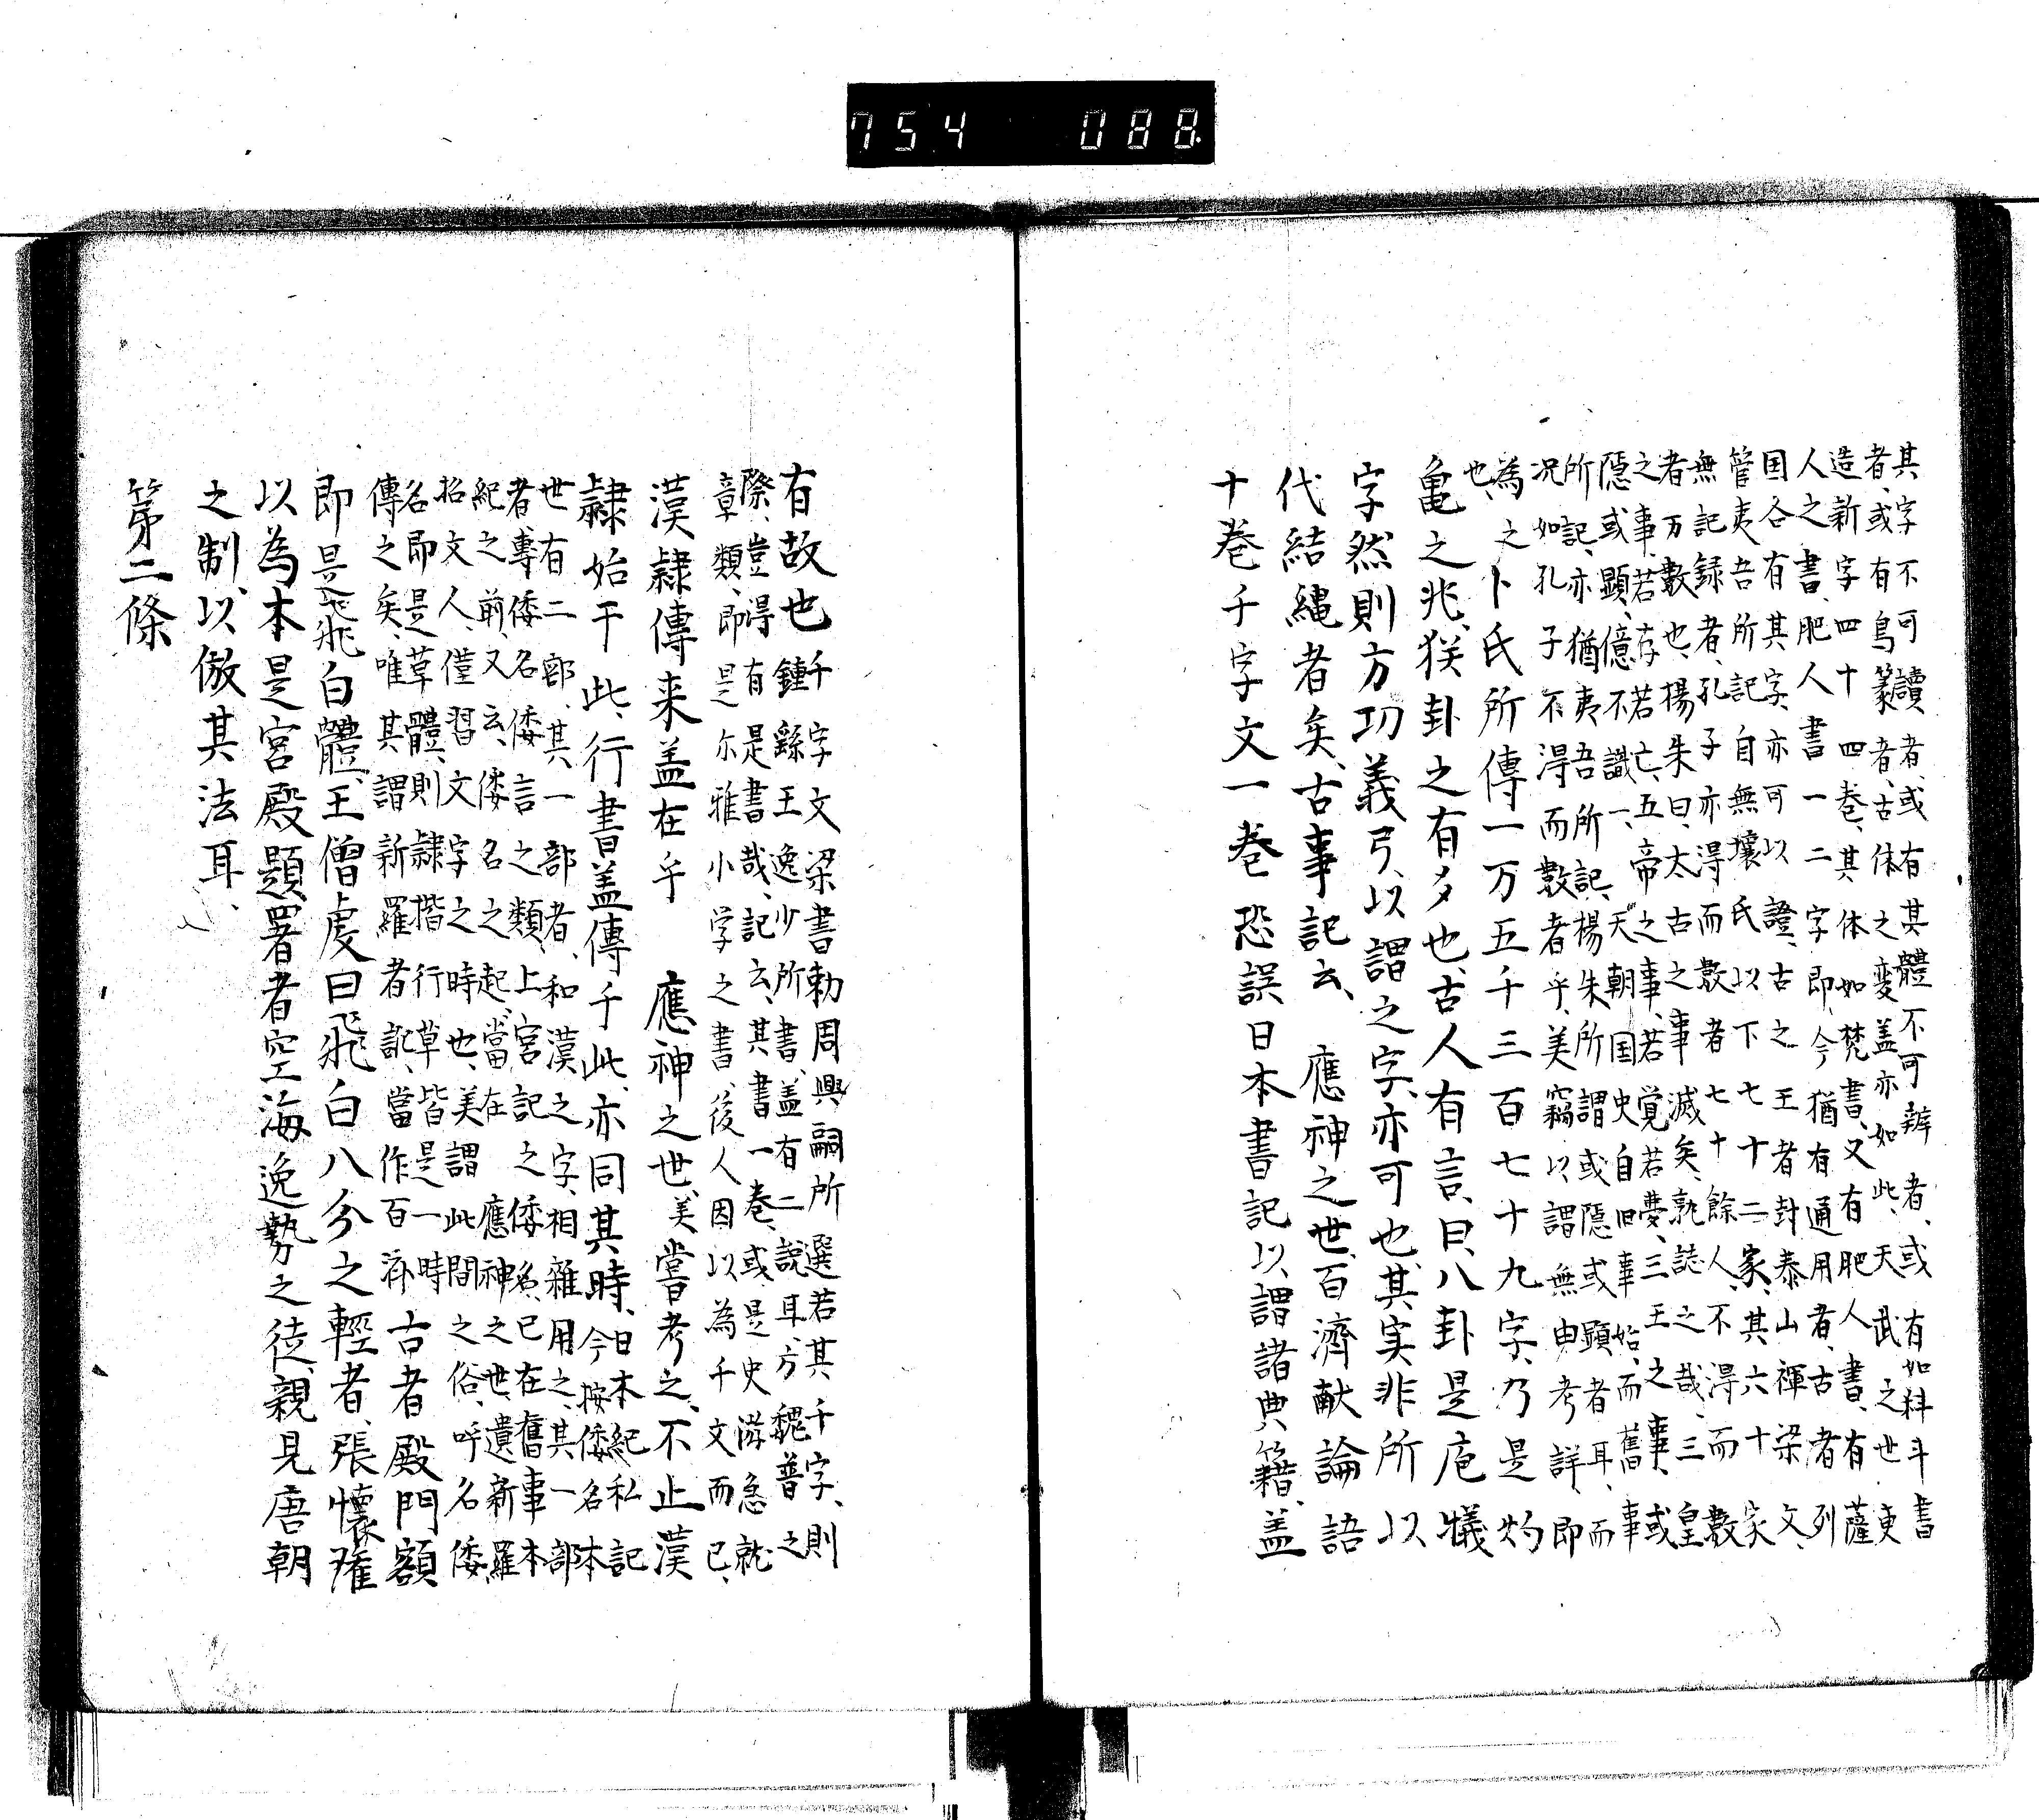 754 088
其字不可讀者、或有其體不可辨者、或有如科斗書
者、或有鳥篆者、古体之変盖亦如此、天武之世吏
造新字四十四卷、其体如梵書、又有肥人書、有薩
人之書、肥人書一二字即今猶有通用者、古者列
国合有其字、亦可以證、古之王者封泰山禅梁文、
管夷吾所記自無壞氏以下七十二家、其六十家
無記録者、孔子亦得而數者七十餘人、不得而數
者万數也、楊朱曰、太古之事滅矣、孰誌之哉、三皇
之事、若存若亡、五帝之事、若覚若夢、三王之事、或
隱或顯、億不識一、天朝国史自旧事始、而舊事
所記、亦猶夷吾所記、楊朱所謂或隱或顯者耳、而
况如孔子不得而數者乎、美竊以謂無由考詳、即
為之卜氏所傳一万五千三百七十九字、乃是灼
也、
亀之兆、猶卦之有爻也、古人有言、曰、八卦是庖犠
字然則方功義弓、以謂之字、亦可也、其実非所以
代結縄者矣、古事記云、應神之世、百濟献論語
十卷千字文一卷恐誤日本書記以謂諸典籍、盖
有故也千字文梁書勅周興嗣所選若其千字、則
鍾繇王逸少所書、盖有二說耳、方魏普之
際、豈得有是書哉、記云、其書一卷、或是史游急就
章類、即是尓雅小学之書、後人因以為千文而已、
漢隷傳来盖在乎應神之世、美甞考之、不止漢
隷始于此、行書盖傳于此、亦同其時、日本紀私記
今按倭名本
世有二部、其一部者、和漢之字、相雜用之、其一部
者專倭名倭言之類、上宮記之倭名、已在舊事本
紀之前、又云、倭名之起、當在應神之世、遺新羅
招文人、僅習文字之時也、美謂此間之俗、呼名倭
名即是草體、則隷楷行草皆是一時
傳之矣、唯其謂新羅者訛、當作百済古者殿門額
即是飛白體、王僧虔曰飛白八分之輕者、張懷瓘
以為本是宮殿題署者空海逸勢之徒、親見唐朝
之制、以倣其法耳、
第二條